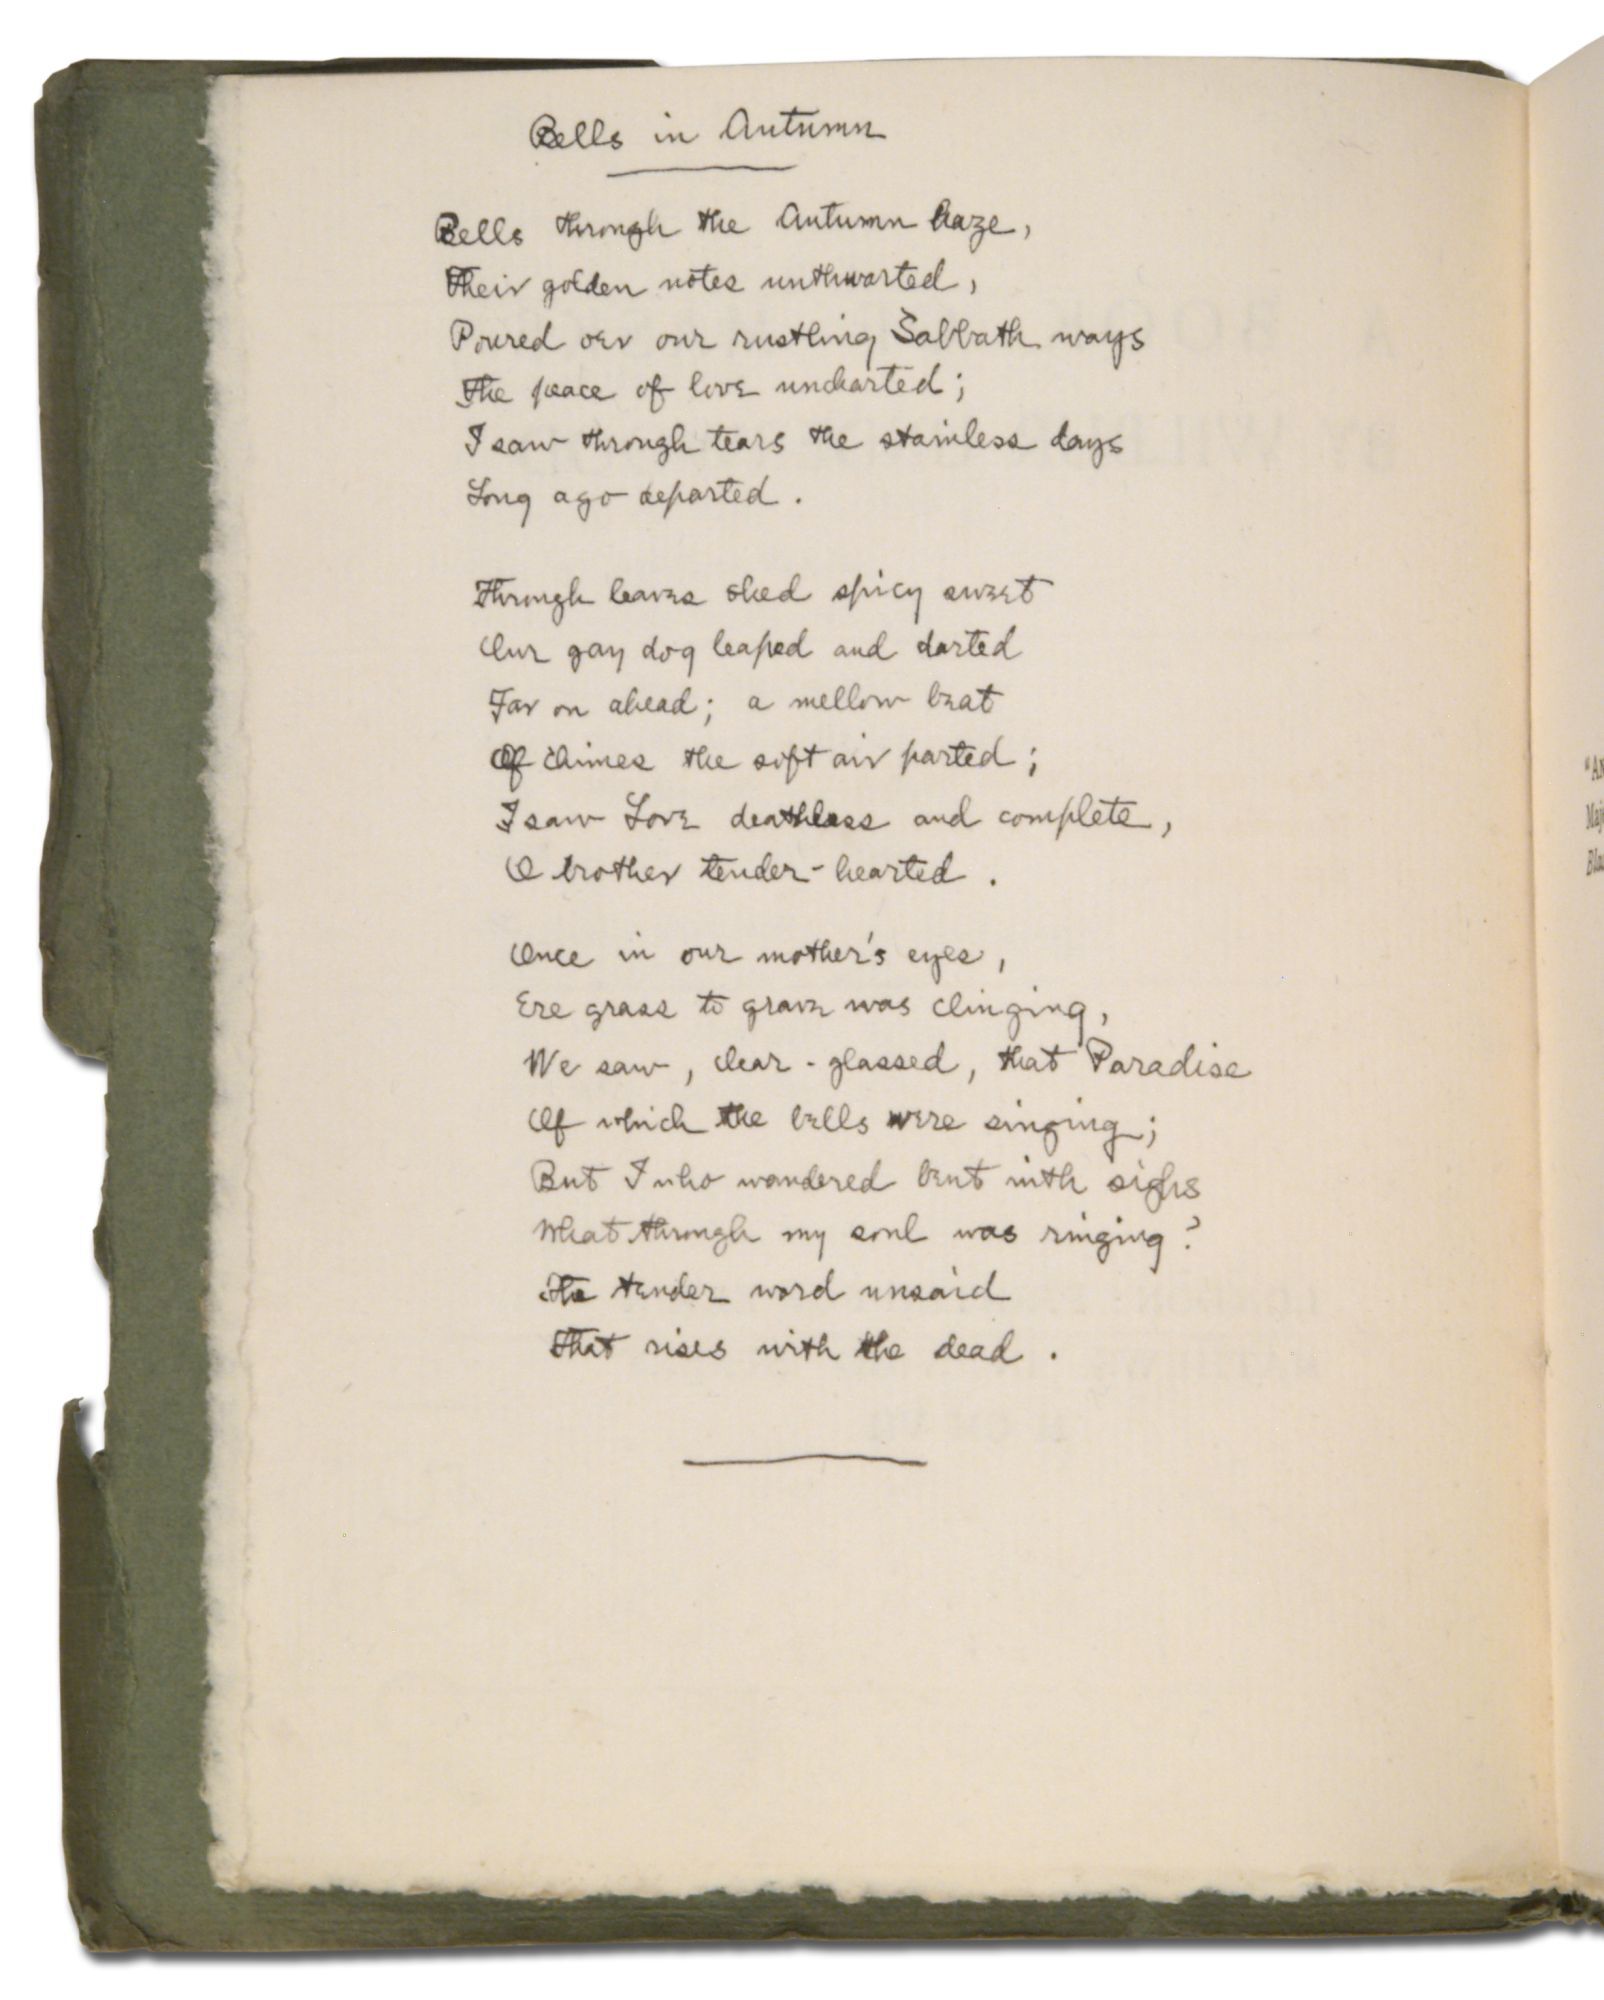 Bells in Autumn
Bells through the Autumn haze,
Their golden notes unthwarted,
Poured oer our rustling Sabbath ways
The peace of love uncharted;
I saw through tears the stainless days
Long ago departed.
Through leaves shed spicy sweet
Our gay dog leaped and darted
Far on ahead; a mellow beat
Of chimes the soft air parted;
I saw Love deathless and complete,
O brother tender-hearted.
Once in our mother's eyes,
Ere grass to grave was clinging,
We saw, clear-glassed, that Paradise
Of which the bells were singing;
But I who wandered bent with sighs
What through my soul was ringing?
The tender word unsaid
That rises with the dead.
"AN
Maj
Bla